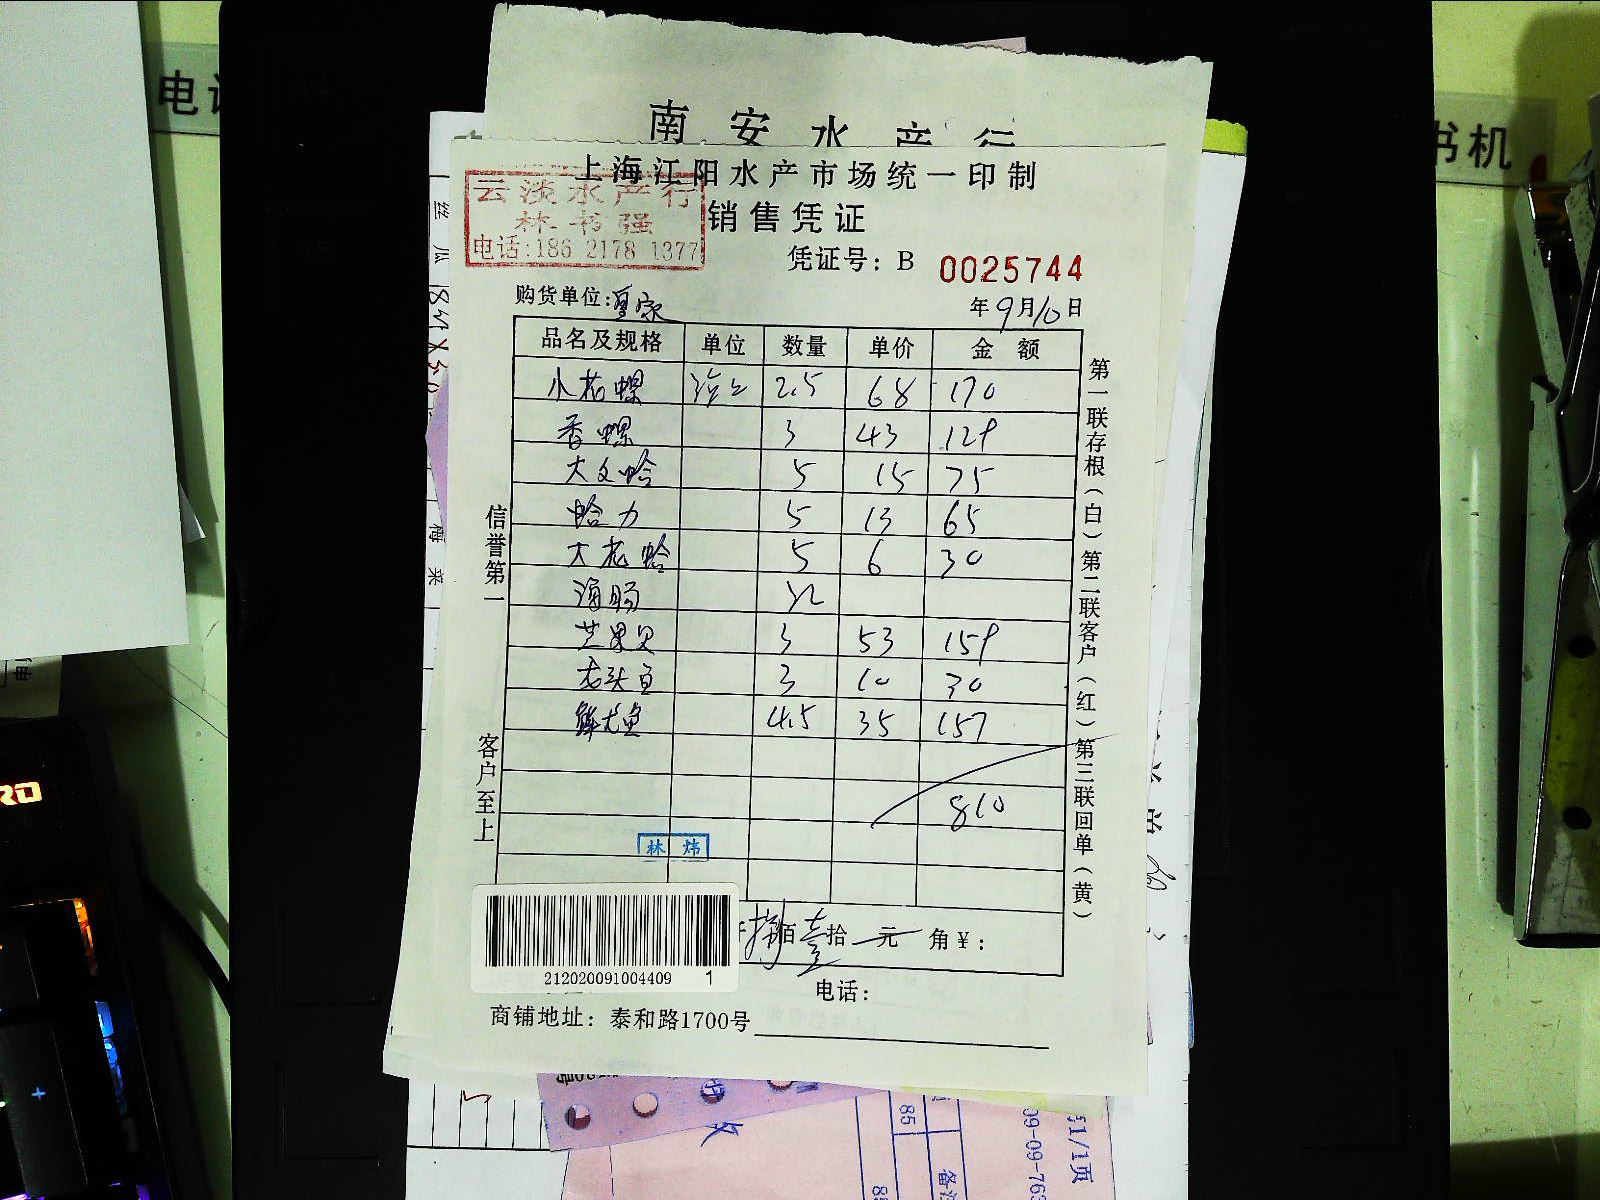 电话
书机
南安水产行
上海江阳水产市场统一印制
云淡水产行
林书强
电话:186 2178 1377
销售凭证
凭证号: B 0025744
购货单位:夏家
年9月10日
品名及规格 单位 数量 单价 金额
小花螺 2.5 68 170
香螺 3 43 129
大文蛤 5 15 75
蛤力 5 13 65
大花蛤 5 6 30
海肠
芒果贝 3 53 159
龙头鱼 3 10 30
鲜尤鱼 4.5 35 157
810
信誉第一
客户至上
第一联存根(白)第二联客户(红)第三联回单(黄)
林炜
捌佰壹拾元 角¥:
212020091004409 1
电话:
商铺地址: 泰和路1700号
丝瓜
梅菜
85
第1/1页